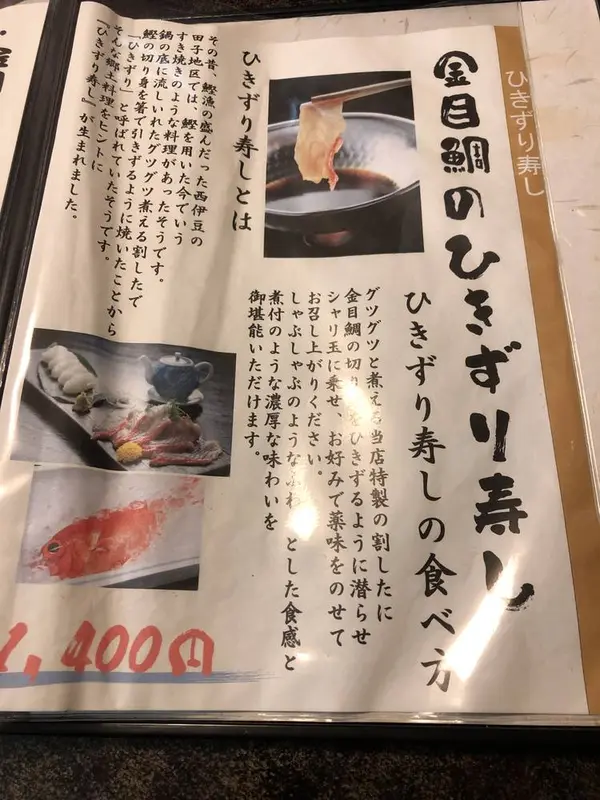 ひきずり寿し
金目鯛のひきずり寿し
ひきずり寿しの食べ方
グツグツと煮える当店特製の割したに
金目鯛の切り身をひきずるように潜らせ
シャリ玉に乗せ、お好みで薬味をのせて
お召し上がりください。
しゃぶしゃぶのようなふわっとした食感と
煮付のような濃厚な味わいを
御堪能いただけます。
ひきずり寿しとは
その昔、鰹漁の盛んだった西伊豆の
田子地区では、鰹を用いた今でいう
すき焼きのような料理があったそうです。
鍋の底に流しいれたグツグツ煮える割したで
鰹の切り身を箸で引きずるように焼いたことから
「ひきずり」と呼ばれていたそうです。
そんな郷土料理をヒントに
『ひきずり寿し』が生まれました。
1,400円